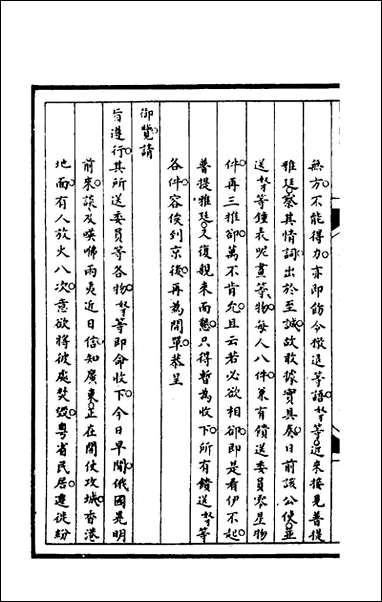 無方不能得力亦即飭令撤退等語奴才等近來接見普提
雅廷察其情詞出於至誠故敢據實具奏日前該公使並
送奴才等鍾表呢畫等物每人八件兼有饋送委員零星物
件再三推卻萬不肯允且云若必欲相卻即是看伊不起
普提雅廷又復親來面懇只得暫為收下所有饋送奴才等
各件容俟到京後再為開單恭呈
御覽請
旨遵行其所送委員等各物奴才等即命收下今日早間俄國晃明
前來談及嘆咈兩夷近日信知廣東正在開仗攻城香港
地面有人放火八次意欲將彼處焚毀粵省民居遷徙紛